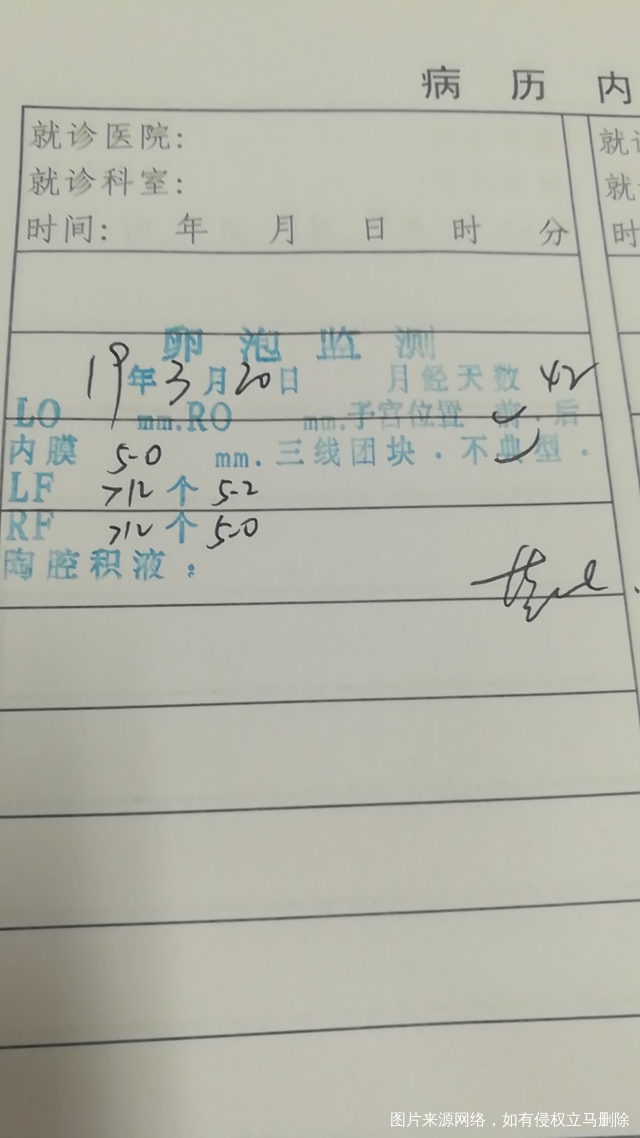 病 历 内
就诊医院:
就诊科室:
时间: 年 月 日 时 分
就
就
时
卵泡监测
19年3月20日 月经天数 42
LO mm.RO mm.子宫位置 前.后
内膜 5.0 mm.三线团块.不典型.
LF >12个 5.2
RF >12个 5.0
陶腔积液:
图片来源网络，如有侵权立马删除